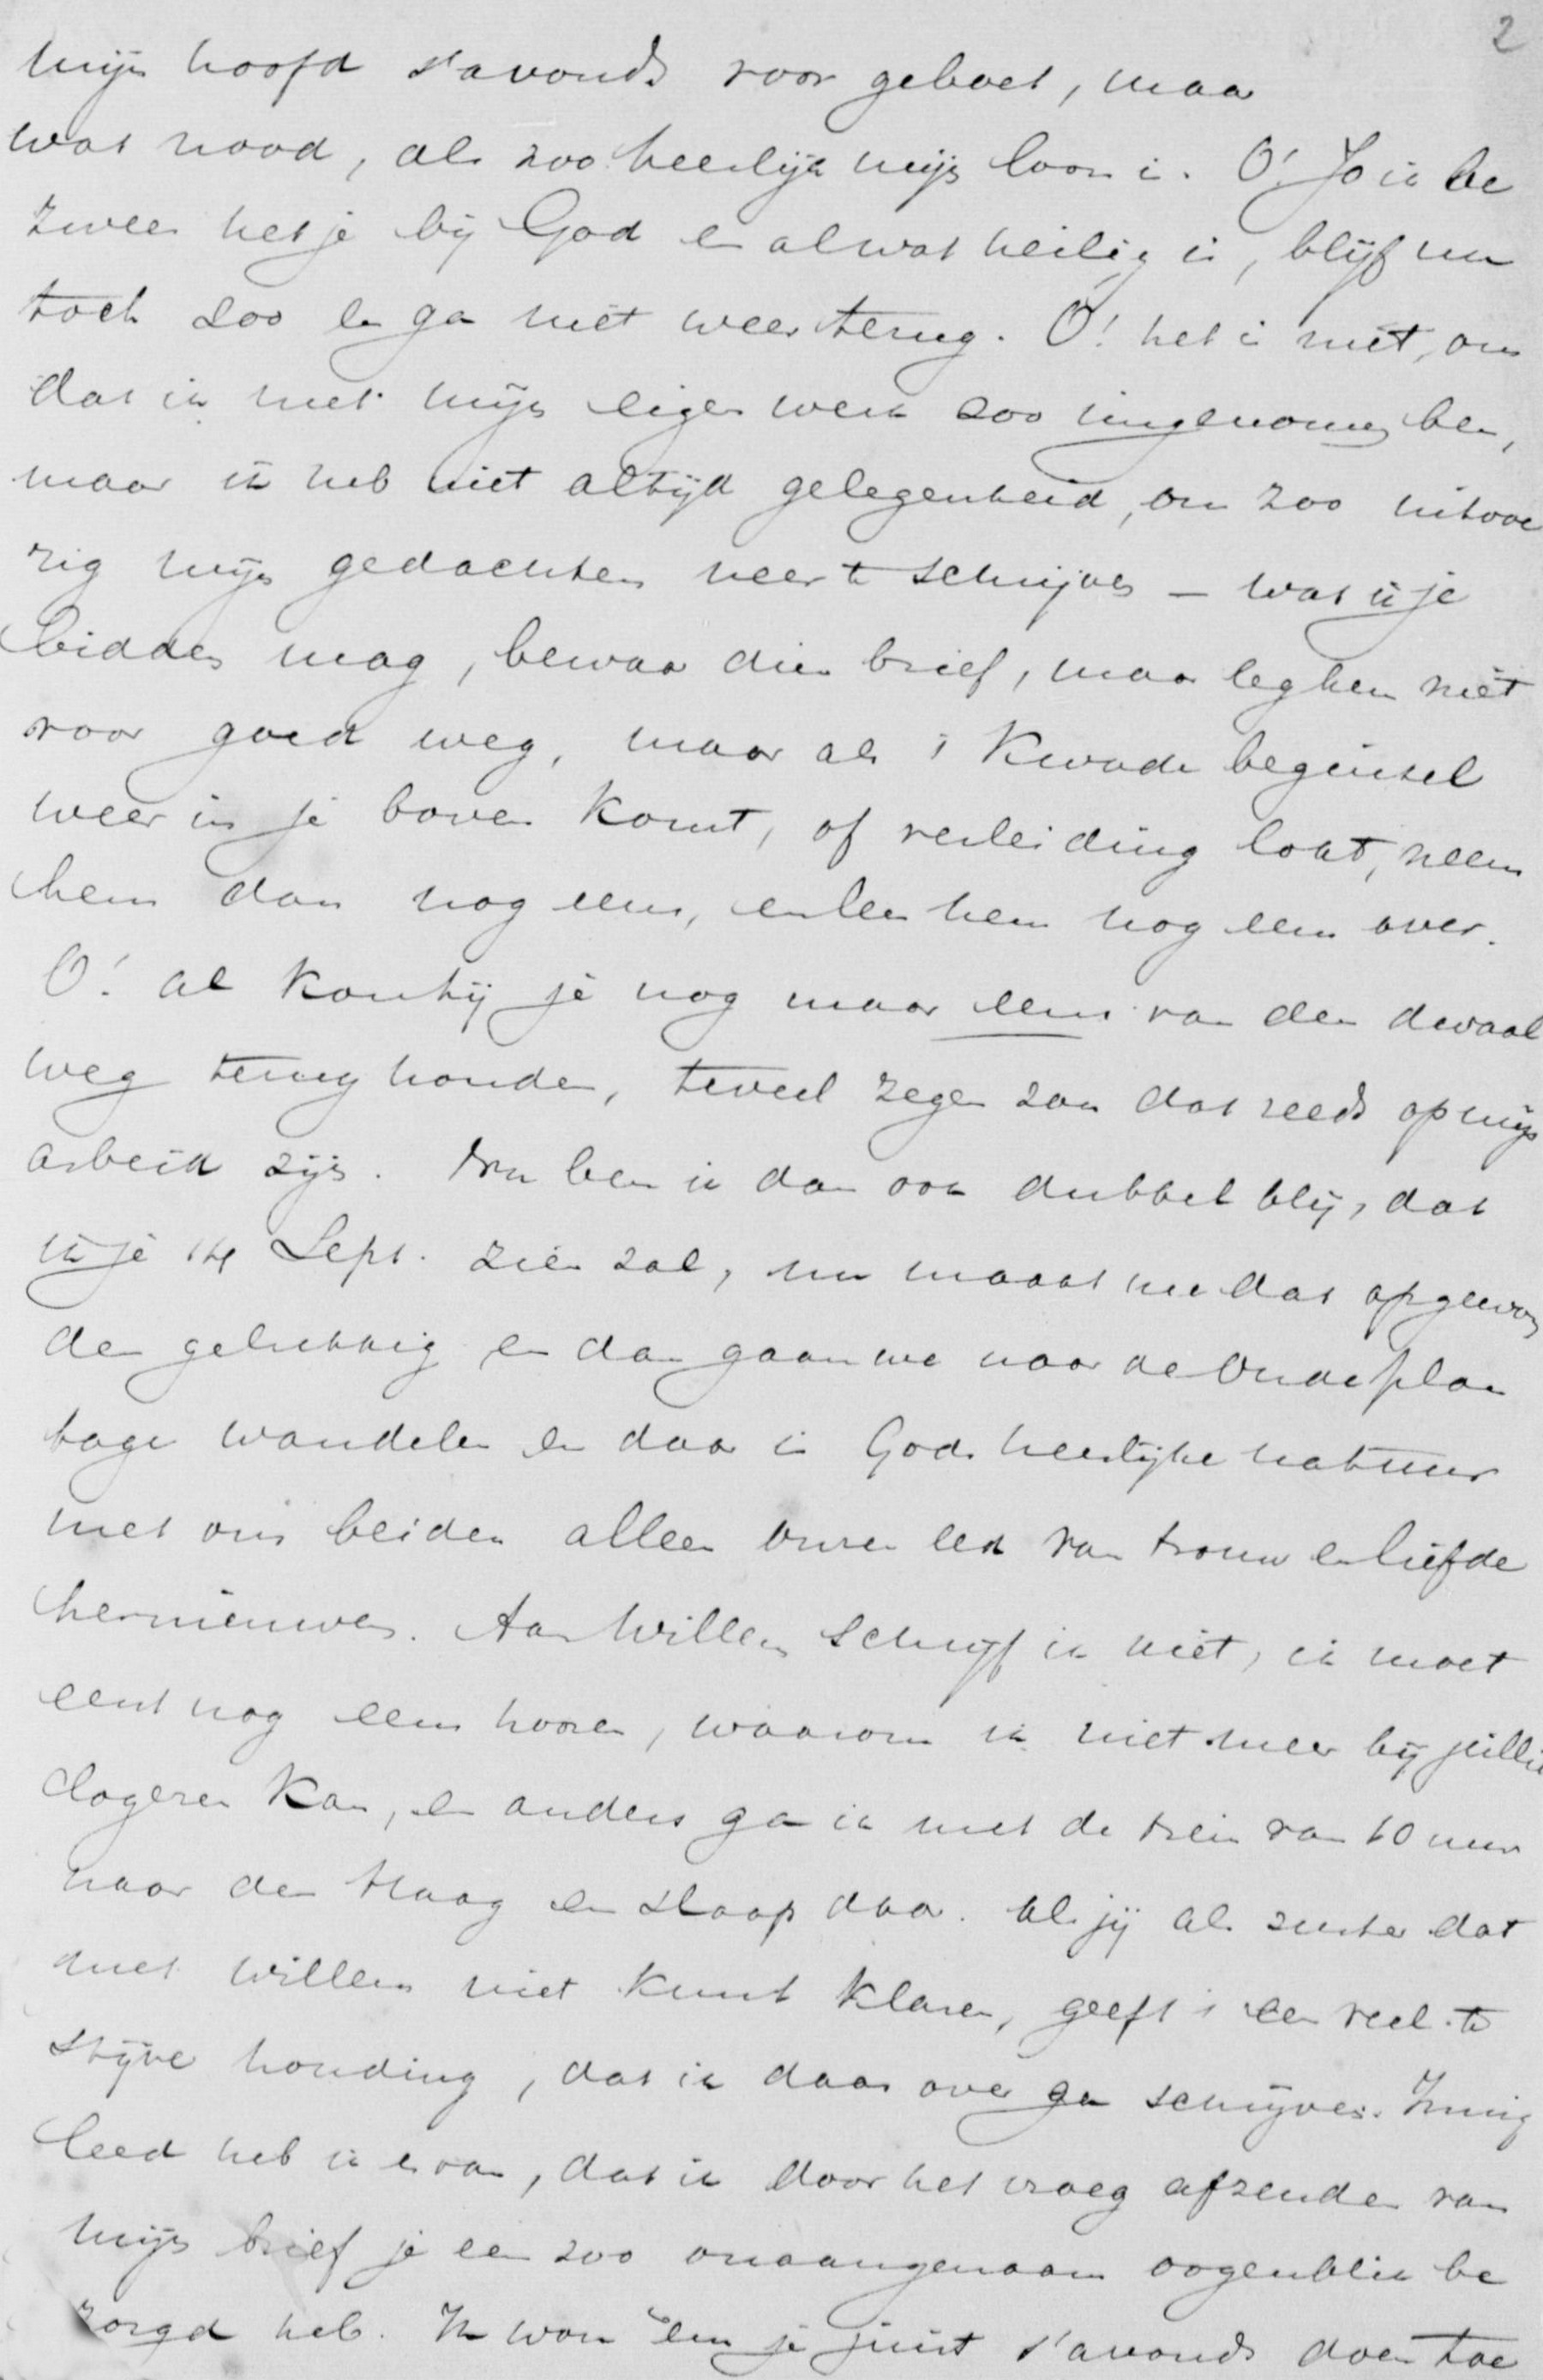 2
mijn hoofd s'avonds voor geboet, maar
wat nood, als zoo heerlijk mijn loon is. O! Jo ik be
zweer het je bij God en alwat heilig is, blijf nu
toch zoo en ga niet weer terug. O! het is niet, om
dat ik met mijn eigen werk zoo ingenomen ben,
maar ik heb niet altijd gelegenheid, om zoo uitvoe
rig mijn gedachten neer te schrijven – wat ik je
bidden mag, bewaar dien brief, maar leg hem niet
voor goed weg, maar als 't Kwade beginsel
weer in je boven komt, of verleiding lokt, neem
hem dan nog eens, en lees hem nog eens over.
O! al kon hij je nog maar eens van den dwaal
weg terug houden, te veel zegen zou dat reeds op mijn
arbeid zijn. Nu ben ik dan ook dubbel blij, dat
ik je 14 Sept. zien zal, nu maakt me dat opgewon
den gelukkig en dan gaan we naar de Oude plan
tage wandelen en daar in Gods heerlijke natuur
met ons beiden alleen onzen eed van trouw en liefde
hernieuwen. Aan Willem schrijf ik niet, ik moet
eerst nog eens hooren, waarom ik niet meer bij jullie
logeren kan, en anders ga ik met de trein van 10 uur
naar den Haag en slaap daar. Als jij als zuster dat
met Willem niet kunt klaren, geeft 't een veel te
stijve houding, dat ik daar over ga schrijven. Innig
leed heb ik ervan, dat ik door het vroeg afzenden van
mijn brief je een zoo onaangenaam oogenblik be
zorgd heb. Ik wou hem je juist s'avonds doen toe